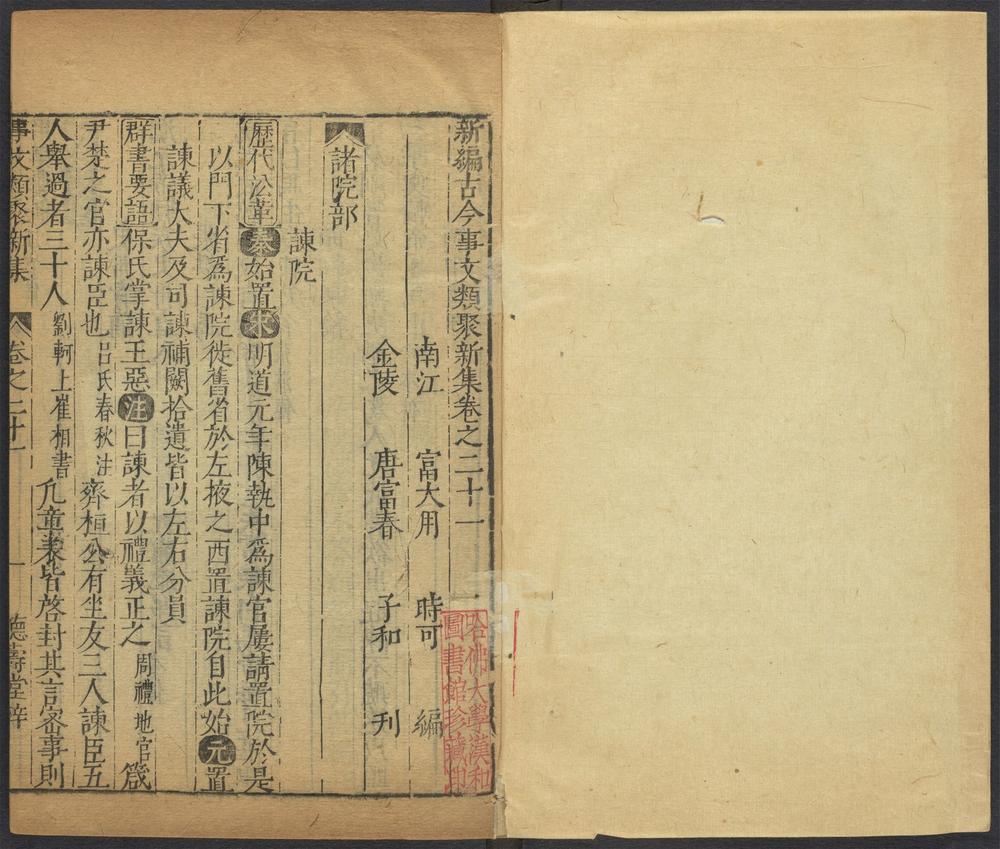 新編古今事文類聚新集卷之二十一
南江 富大用 時可 編
金陵 唐富春 子和 刊
諸院部
諫院
歷代沿革秦始置宋明道元年陳執中爲諫官屢請置院於是
以門下省爲諫院徙舊省於左掖之西置諫院自此始元置
諫議大夫及司諫補闕拾遺皆以左右分員
群書要語保氏掌諫王惡注曰諫者以禮義正之周禮地官箴
尹楚之官亦諫臣也呂氏春秋注齊桓公有坐友三人諫臣五
人舉過者三十人劉軻上崔相書凡童表皆啓封其言密事則
事文類聚新集 卷之二十一 一 德壽堂梓
哈佛大學漢和
圖書館珍藏印